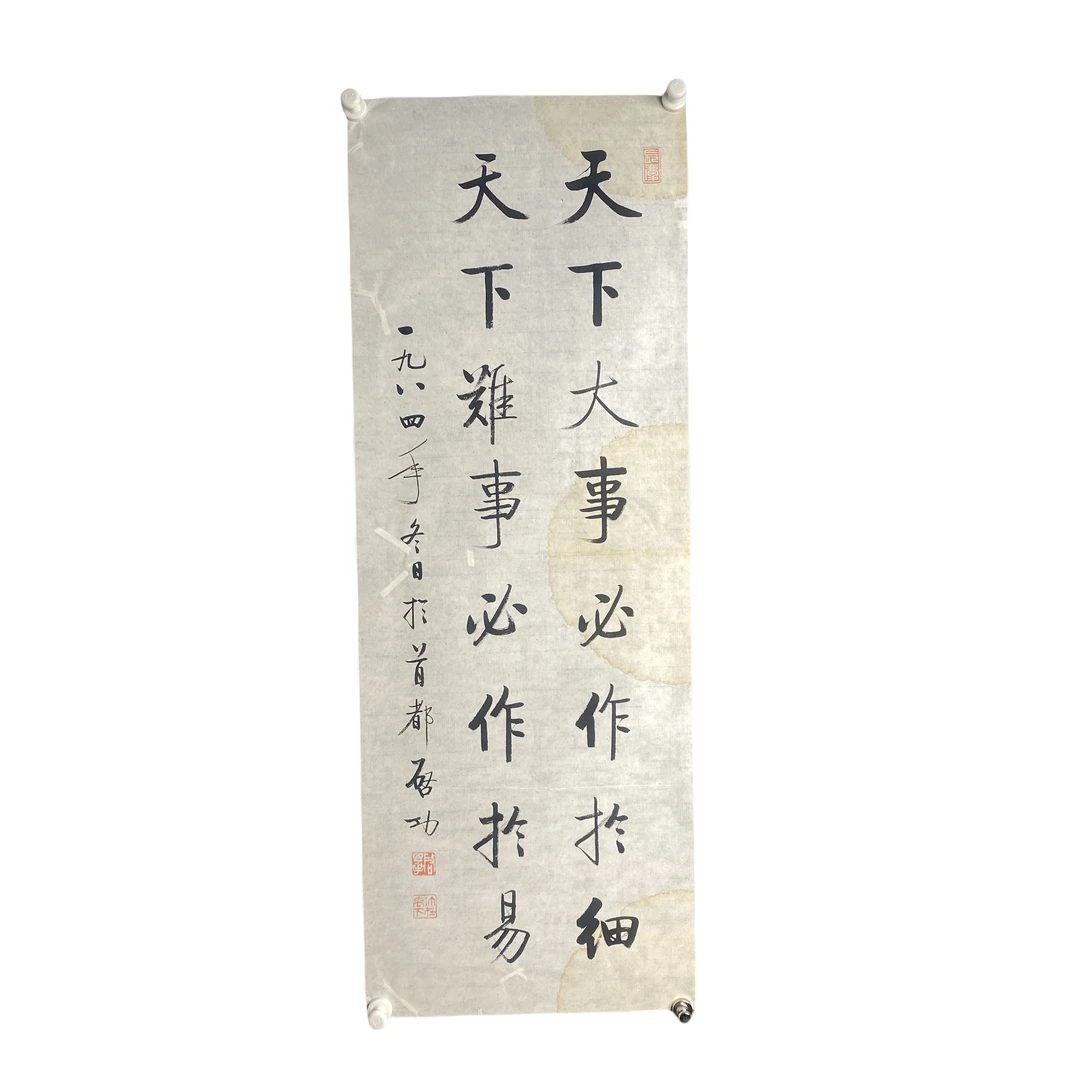 天下大事必作於細
天下難事必作於易
一九八四年冬日於首都啓功